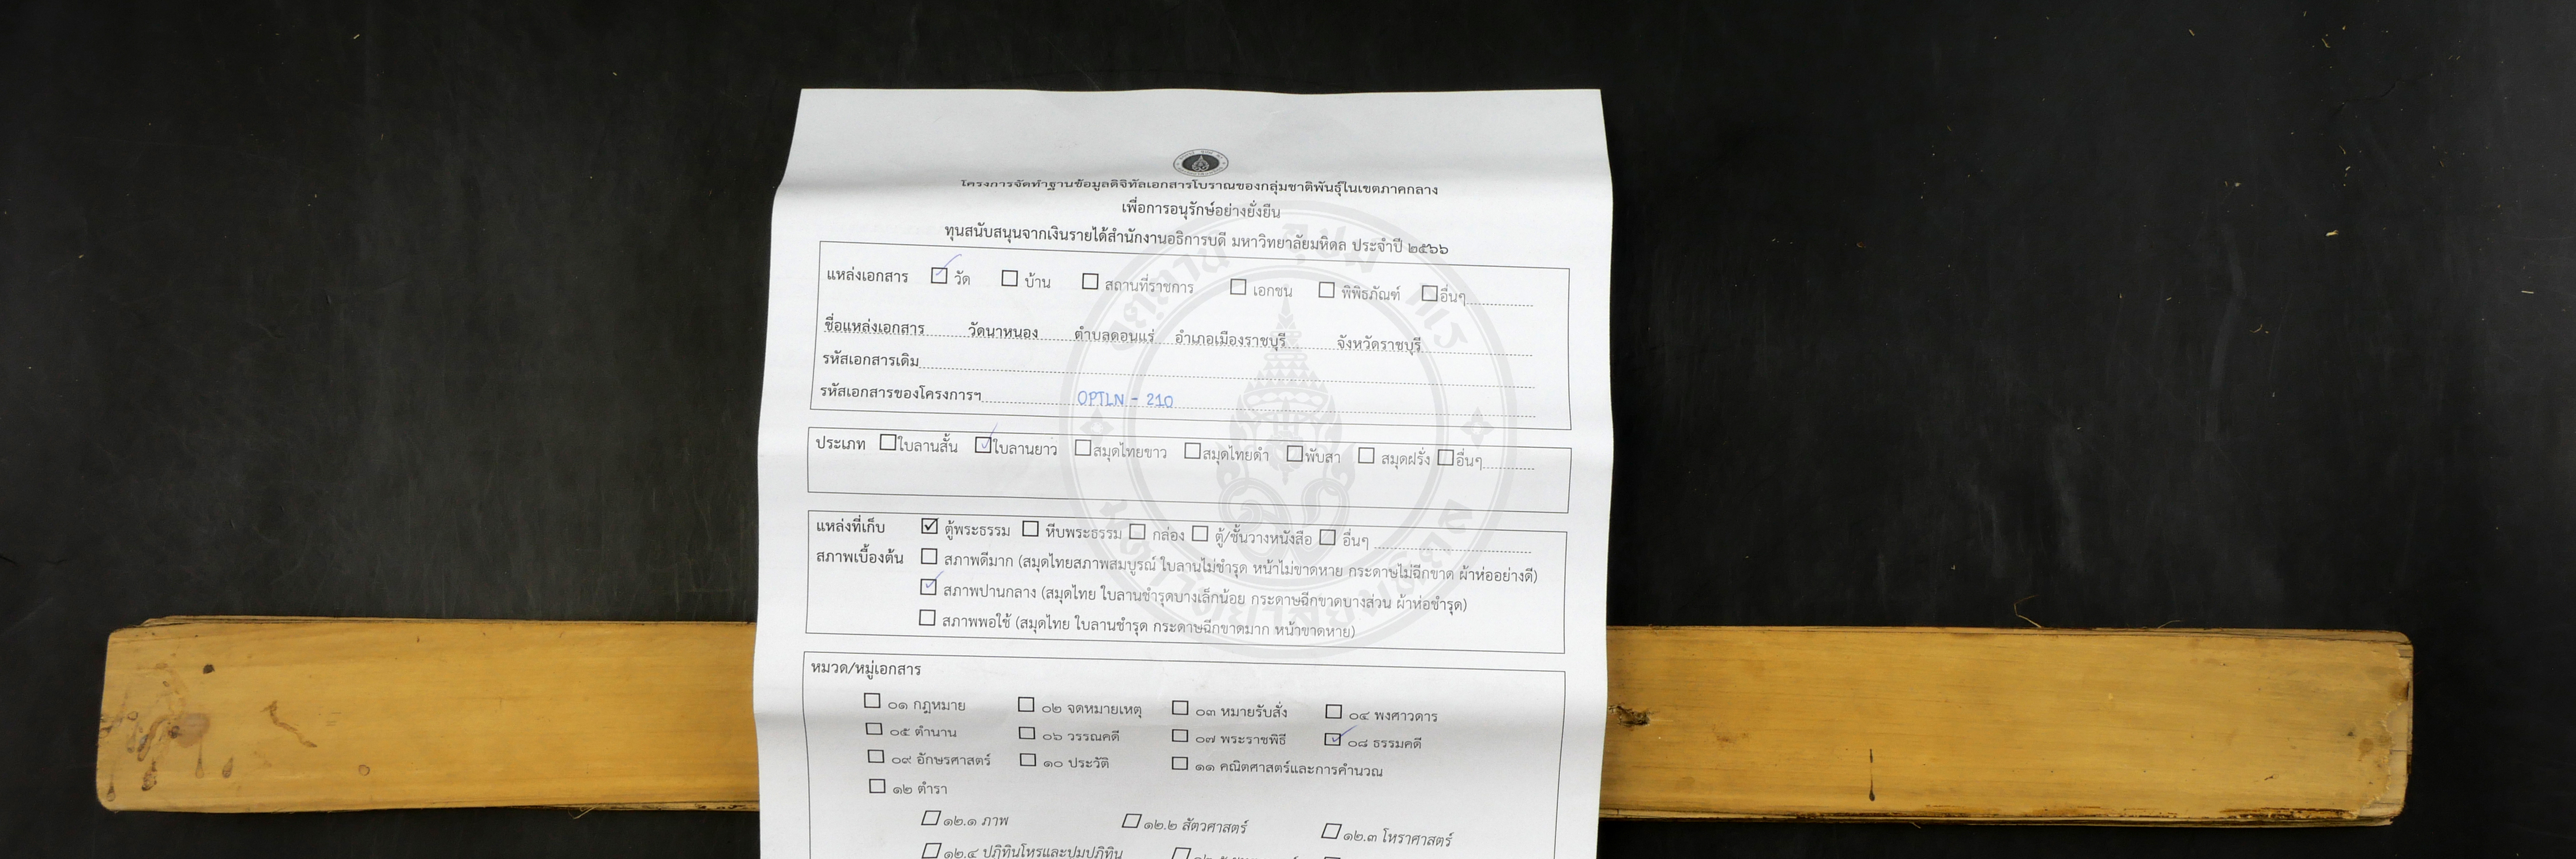 โครงการจัดทำฐานข้อมูลดิจิทัลเอกสารโบราณของกลุ่มชาติพันธุ์ในเขตภาคกลาง
เพื่อการอนุรักษ์อย่างยั่งยืน
ทุนสนับสนุนจากเงินรายได้สำนักงานอธิการบดี มหาวิทยาลัยมหิดล ประจำปี ๒๕๖๖
แหล่งเอกสาร ☑ วัด ☐ บ้าน ☐ สถานที่ราชการ ☐ เอกชน ☐ พิพิธภัณฑ์ ☐ อื่นๆ
ชื่อแหล่งเอกสาร วัดนาหนอง ตำบลดอนแร่ อำเภอเมืองราชบุรี จังหวัดราชบุรี
รหัสเอกสารเดิม
รหัสเอกสารของโครงการฯ OPTLN - 210
ประเภท ☐ ใบลานสั้น ☑ ใบลานยาว ☐ สมุดไทยขาว ☐ สมุดไทยดำ ☐ พับสา ☐ สมุดฝรั่ง ☐ อื่นๆ
แหล่งที่เก็บ ☑ ตู้พระธรรม ☐ หีบพระธรรม ☐ กล่อง ☐ ตู้/ชั้นวางหนังสือ ☐ อื่นๆ
สภาพเบื้องต้น ☐ สภาพดีมาก (สมุดไทยสภาพสมบูรณ์ ใบลานไม่ชำรุด หน้าไม่ขาดหาย กระดาษไม่ฉีกขาด ผ้าห่ออย่างดี)
☑ สภาพปานกลาง (สมุดไทย ใบลานชำรุดบางเล็กน้อย กระดาษฉีกขาดบางส่วน ผ้าห่อชำรุด)
☐ สภาพพอใช้ (สมุดไทย ใบลานชำรุด กระดาษฉีกขาดมาก หน้าขาดหาย)
หมวด/หมู่เอกสาร
☐ ๐๑ กฎหมาย ☐ ๐๒ จดหมายเหตุ ☐ ๐๓ หมายรับสั่ง ☐ ๐๔ พงศาวดาร
☐ ๐๕ ตำนาน ☐ ๐๖ วรรณคดี ☐ ๐๗ พระราชพิธี ☑ ๐๘ ธรรมคดี
☐ ๐๙ อักษรศาสตร์ ☐ ๑๐ ประวัติ ☐ ๑๑ คณิตศาสตร์และการคำนวณ
☐ ๑๒ ตำรา
☐ ๑๒.๑ ภาพ ☐ ๑๒.๒ สัตวศาสตร์ ☐ ๑๒.๓ โหราศาสตร์
☐ ๑๒.๔ ปฏิทินโหรและปูมปฏิทิน